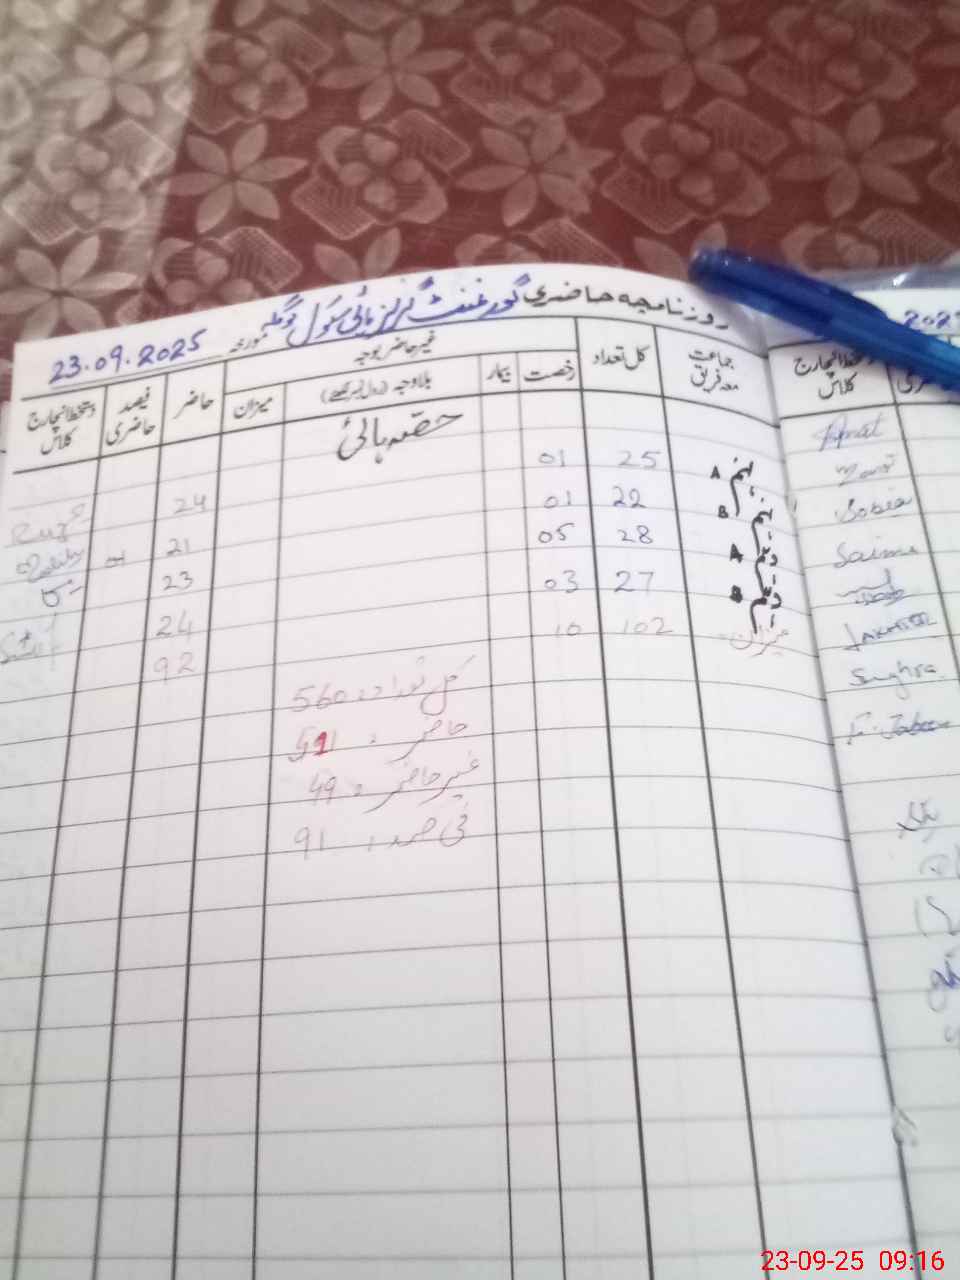 روزنامچہ حاضری گورنمنٹ گرلز ہائی سکول بمورخہ 23.09.2025
جماعت معہ فریق کل تعداد غیر حاضر بوجہ حاضر فیصد حاضری دستخط انچارج کلاس
رخصت بیمار بلاوجہ میزان
حصہ ہائی
نہم A 25 01 24
نہم B 22 01 21
دہم A 28 05 23
دہم B 27 03 24
میزان 102 10 92
کل تعداد 560
حاضر 511
غیر حاضر 49
فی صد 91
2025
دستخط انچارج کلاس
Sobia
Saima
Sughra
F. Jabeen
23-09-25 09:16